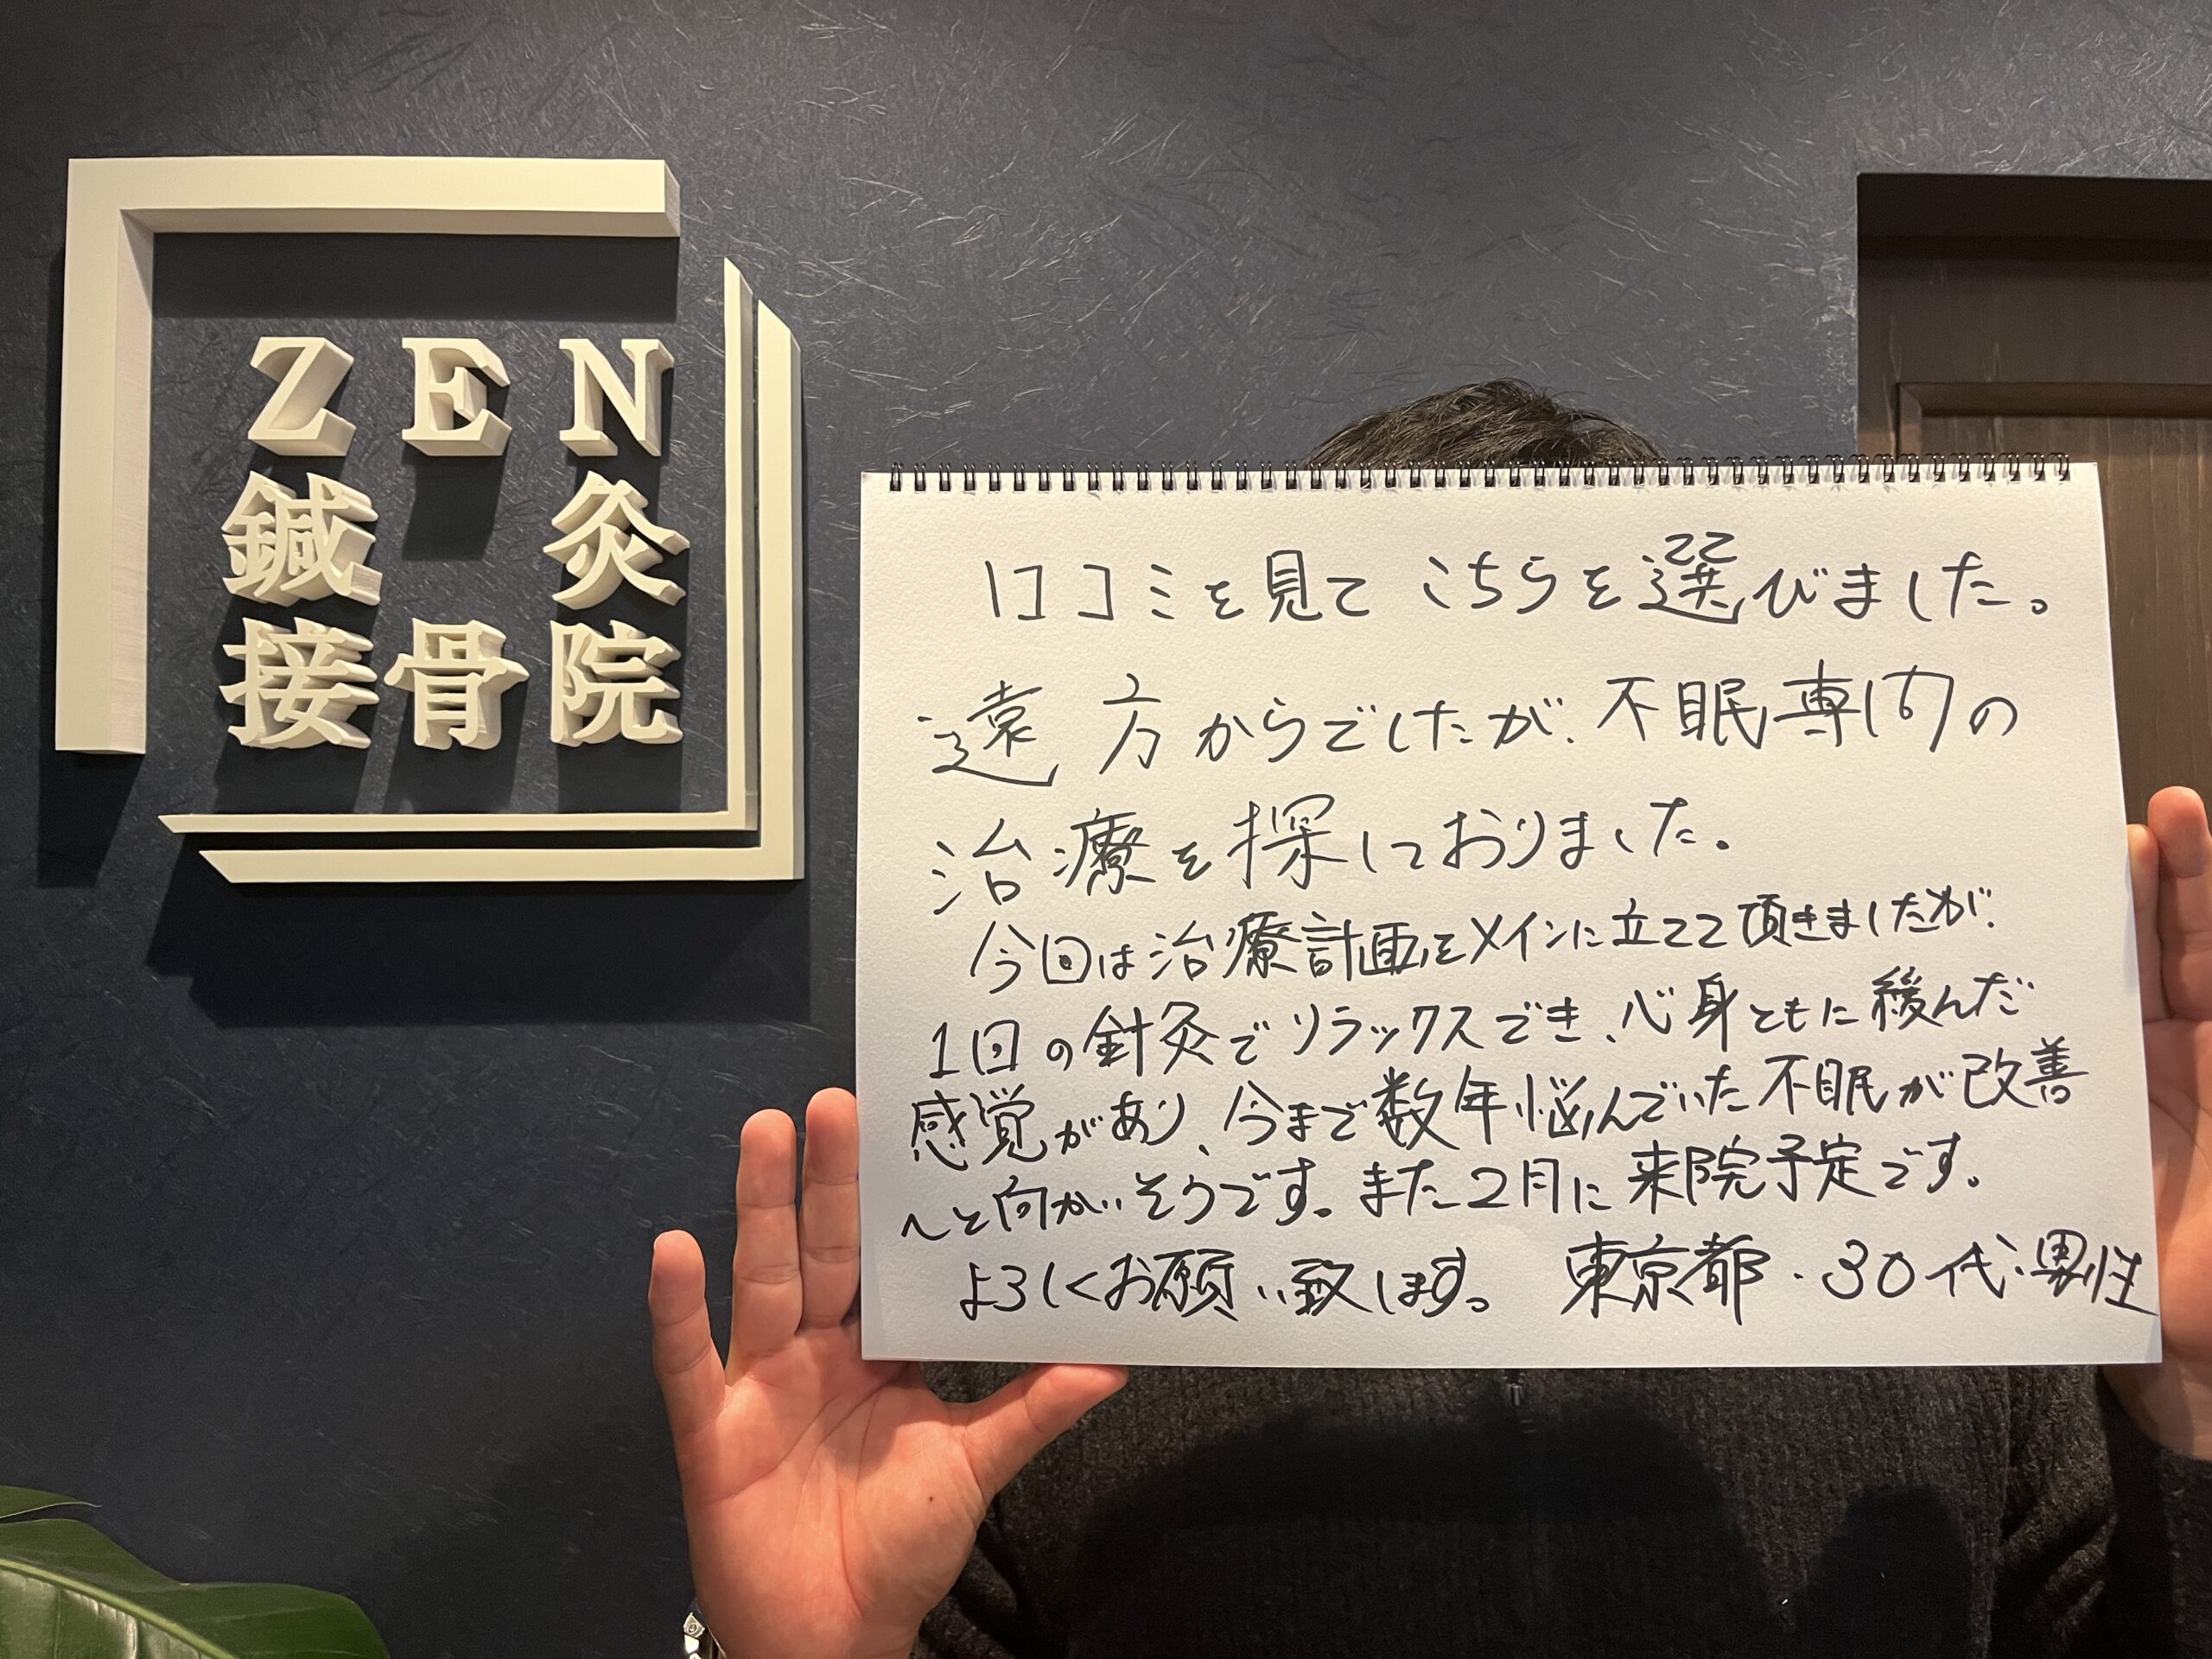 ZEN
鍼灸
接骨院
口コミを見てこちらを選びました。
遠方からでしたが、不眠専門の
治療を探しておりました。
今回は治療計画をメインに立てて頂きましたが、
1回の針灸でリラックスでき、心身ともに緩んだ
感覚があり、今まで数年悩んでいた不眠が改善
へと向かいそうです。また2月に来院予定です。
よろしくお願い致します。 東京都・30代男性